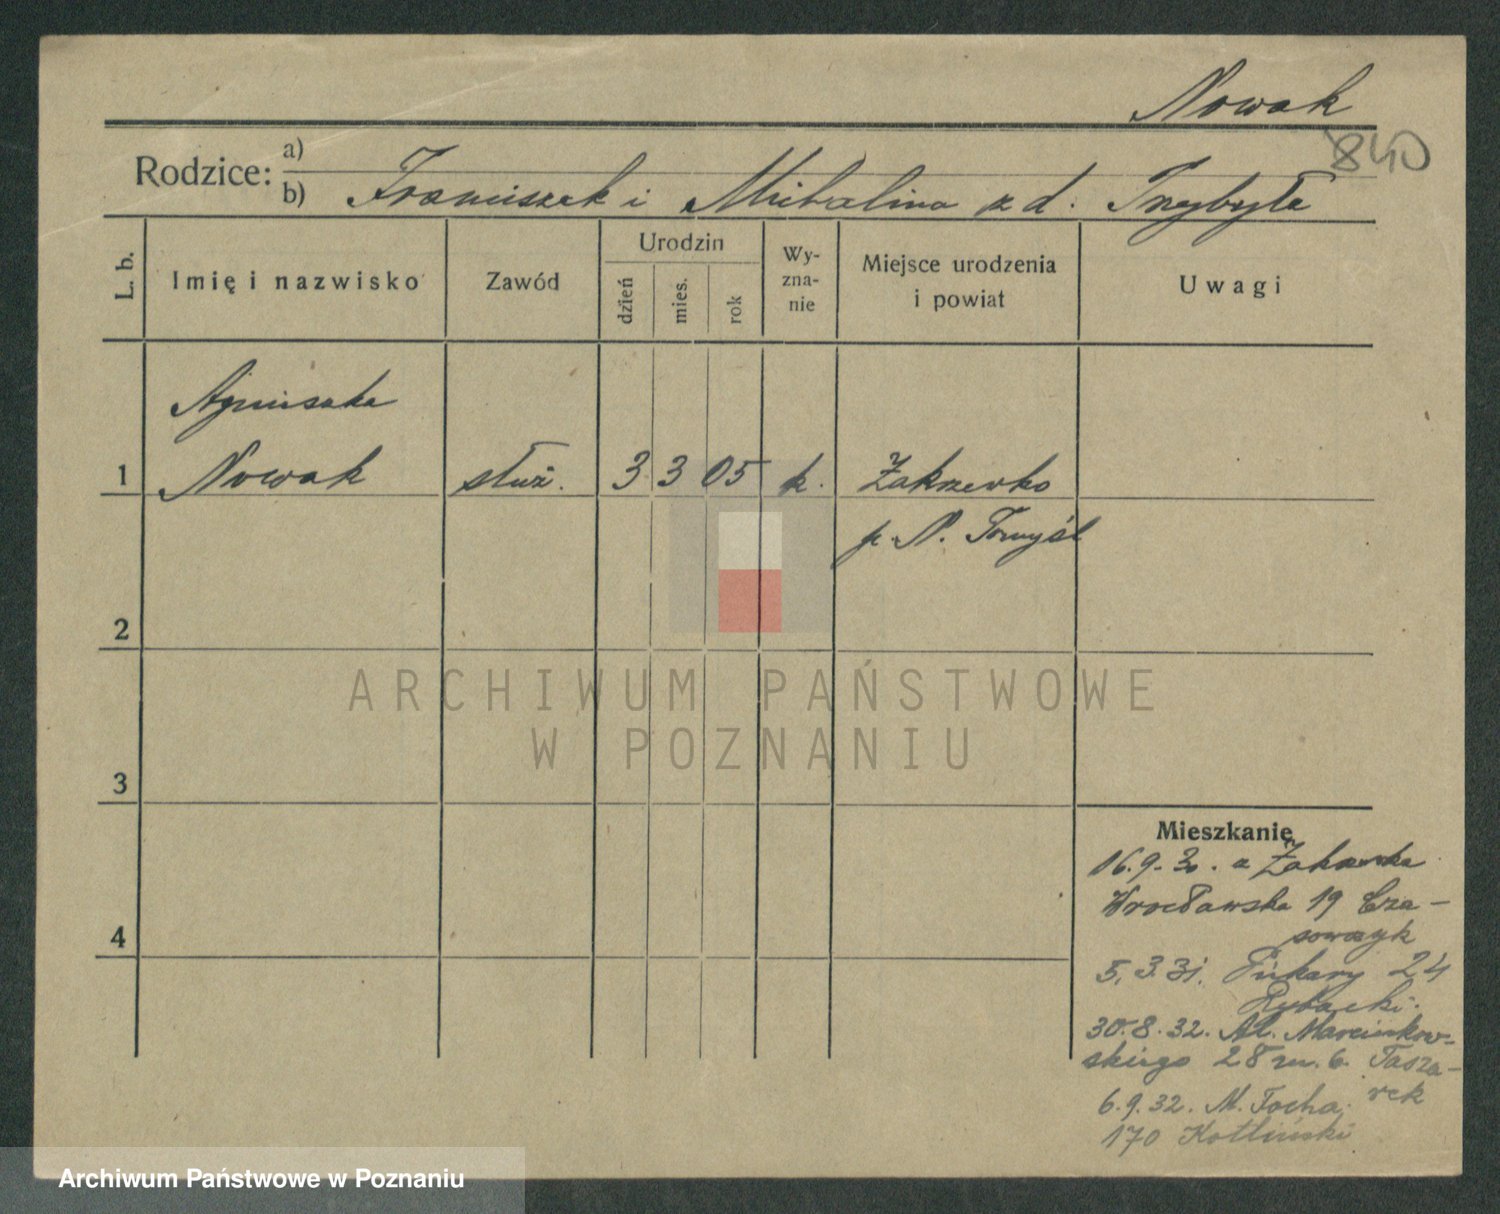 Nowak
840
Rodzice: a)
b) Franciszek i Michalina z d. Przybyła
L. b.
Imię i nazwisko
Zawód
Urodzin
dzień
mies.
rok
Wy-
zna-
nie
Miejsce urodzenia
i powiat
Uwagi
Agnieszka
1 Nowak służ. 3 3 05 k. Zakrzewko
p. N. Tomyśl
2
3
4
Mieszkanie
16.9.30. z Zakrzewka
Wrocławska 19
5.3.31. 24
Rybacki.
30.8.32. Al. Marcinkow-
skiego 28 m. 6. Tasza-
rek
6.9.32. M. Focha
170 Kotliński
ARCHIWUM PAŃSTWOWE
W POZNANIU
Archiwum Państwowe w Poznaniu